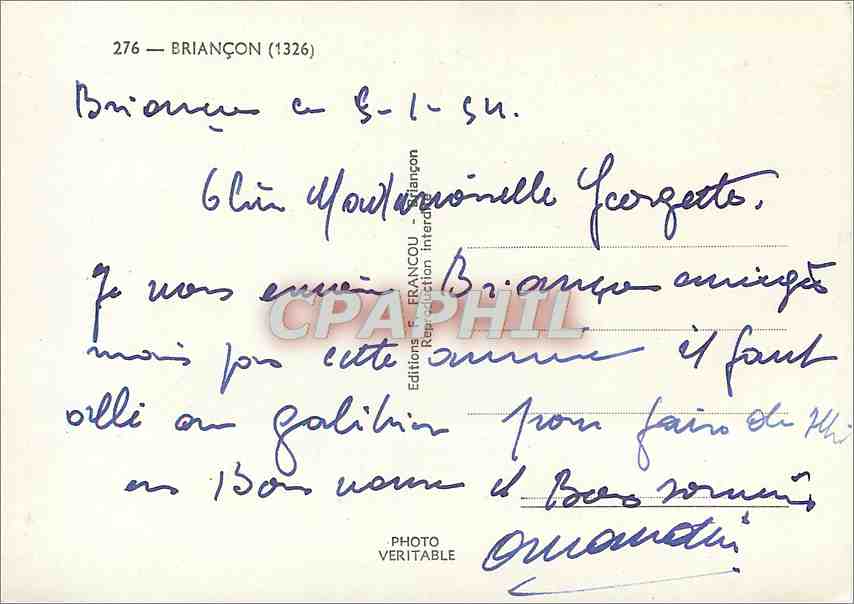 276 — BRIANÇON (1326)
Briançon ce 5-1-54.
Chère Mademoiselle Georgette.
Je vous envoie Briançon
mais pas cette année il faut
allé au galibier pour faire du
Bons et Bons souvenirs
Editions F. FRANCOU - Briançon
Reproduction interdite
CPAPHIL
PHOTO
VERITABLE